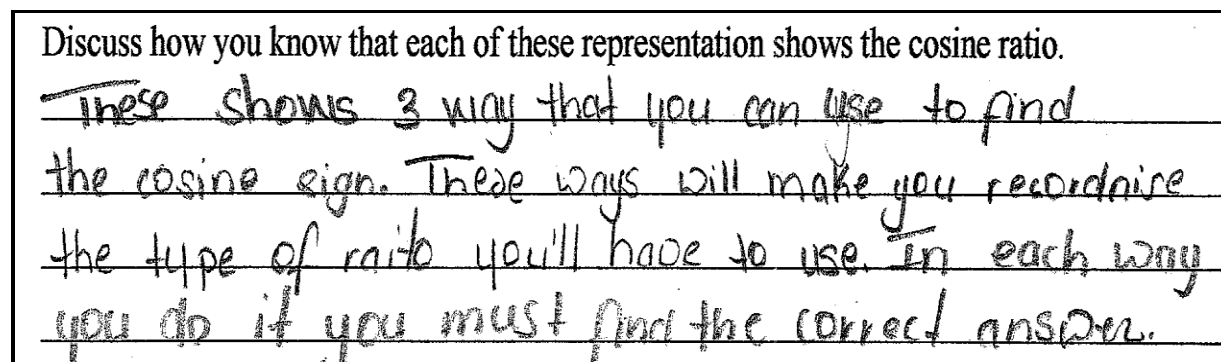 Discuss how you know that each of these representation shows the cosine ratio.
These shows 3 way that you can use to find
the cosine sign. These ways will make you recordnise
the type of raito you'll have to use. In each way
you do it you must find the correct answer.